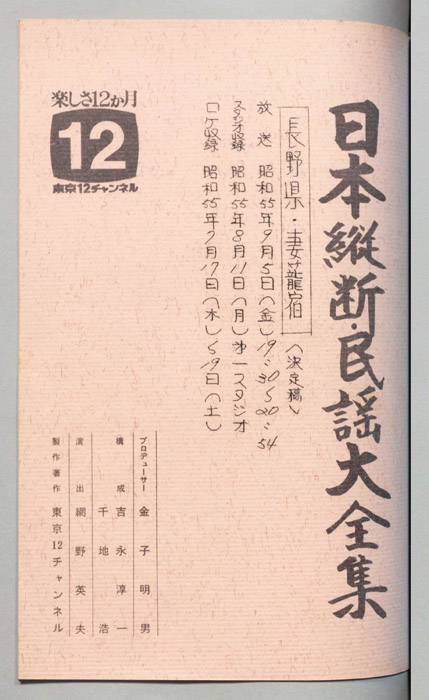 日本縦断・民謡大全集
長野県・妻籠宿 (決定稿)
放送 昭和55年9月5日(金)19:30〜20:54
スタジオ収録 昭和55年8月11日(月)オ一スタジオ
ロケ収録 昭和55年7月17日(木)〜19日(土)
楽しさ12か月
12
東京12チャンネル
プロデューサー 金子明男
構成 吉永淳一
千地浩
演出 網野英夫
製作著作 東京12チャンネル